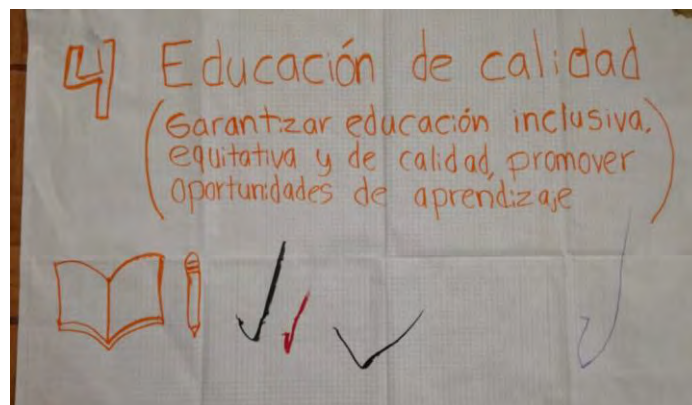 4 Educación de calidad
(Garantizar educación inclusiva,
equitativa y de calidad, promover
oportunidades de aprendizaje)